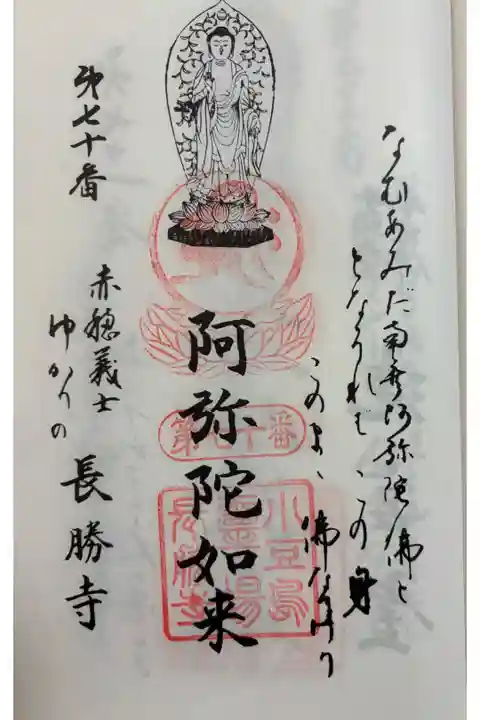 なむあみだ南無阿弥陀佛と
となうれば この身
このまゝ 佛なりけり
阿弥陀如来
第七十番
小豆島
霊場
長勝寺
㐧七十番
赤穂義士
ゆかりの
長勝寺